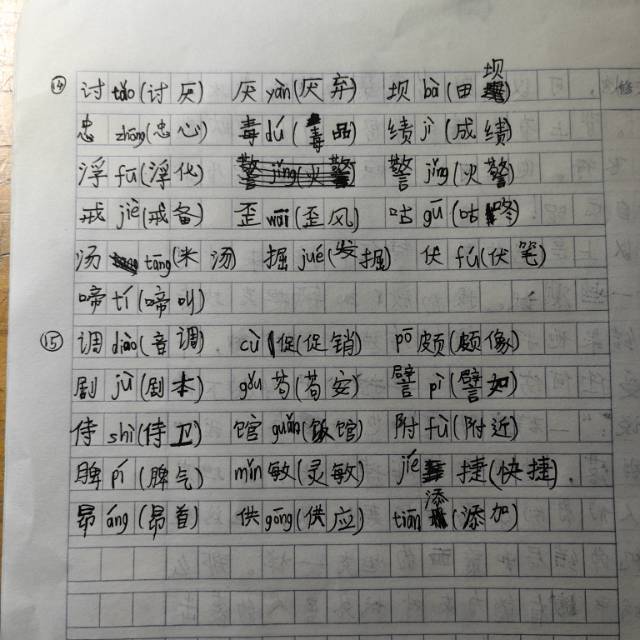 ⑭ 讨tǎo(讨厌) 厌yàn(厌弃) 坝bà(田坝)
忠zhōng(忠心) 毒dú(毒品) 绩jì(成绩)
浮fú(浮化) 警jǐng(火警) 警jǐng(火警)
戒jiè(戒备) 歪wāi(歪风) 咕gū(咕咚)
汤tāng(米汤) 掘jué(发掘) 伏fú(伏笔)
啼tí(啼叫)
⑮ 调diào(音调) cù促(促销) pō颇(颇像)
剧jù(剧本) gǒu苟(苟安) 譬pì(譬如)
侍shì(侍卫) 馆guǎn(饭馆) 附fù(附近)
脾pí(脾气) mǐn敏(灵敏) jié捷(快捷)
昂áng(昂首) 供gōng(供应) tiān添(添加)